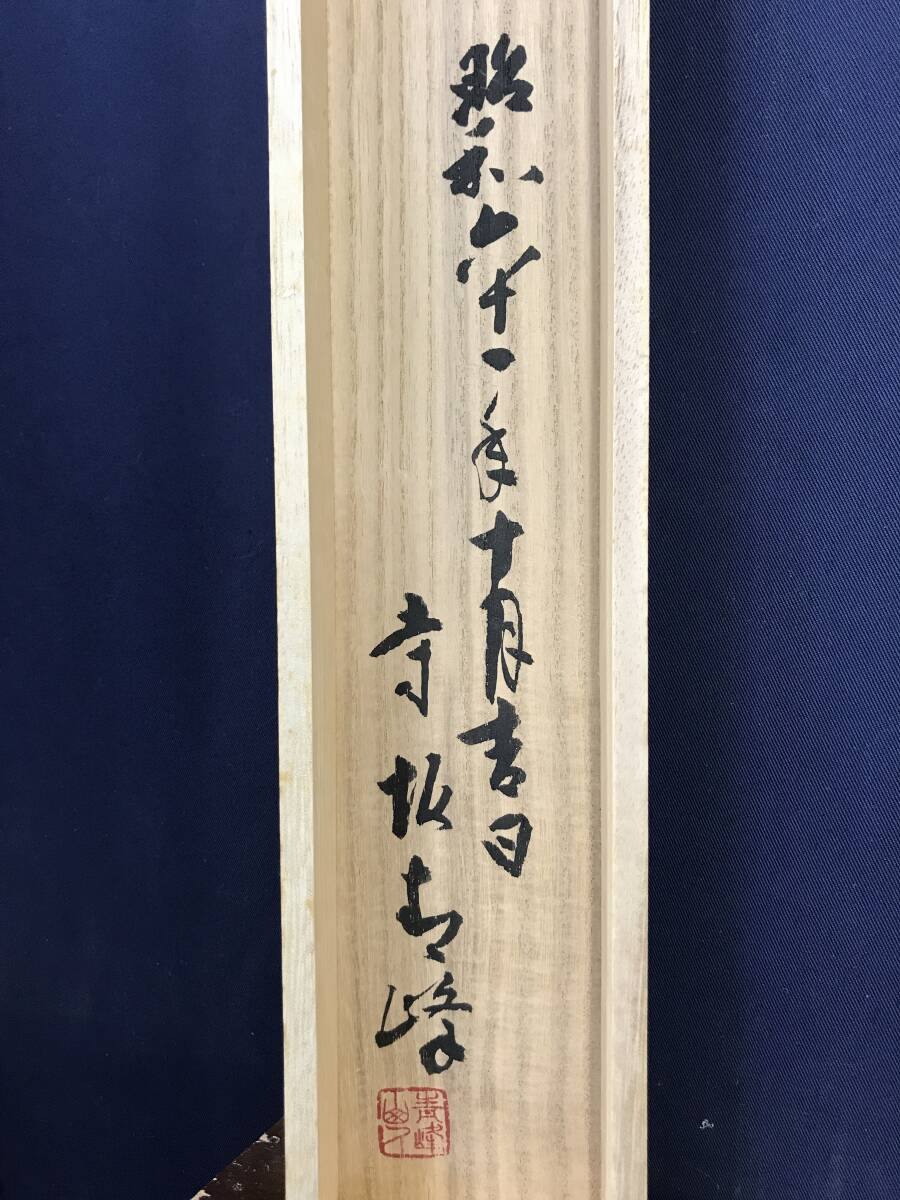 昭和六十一年十月吉日
寺坂青峰
青峰